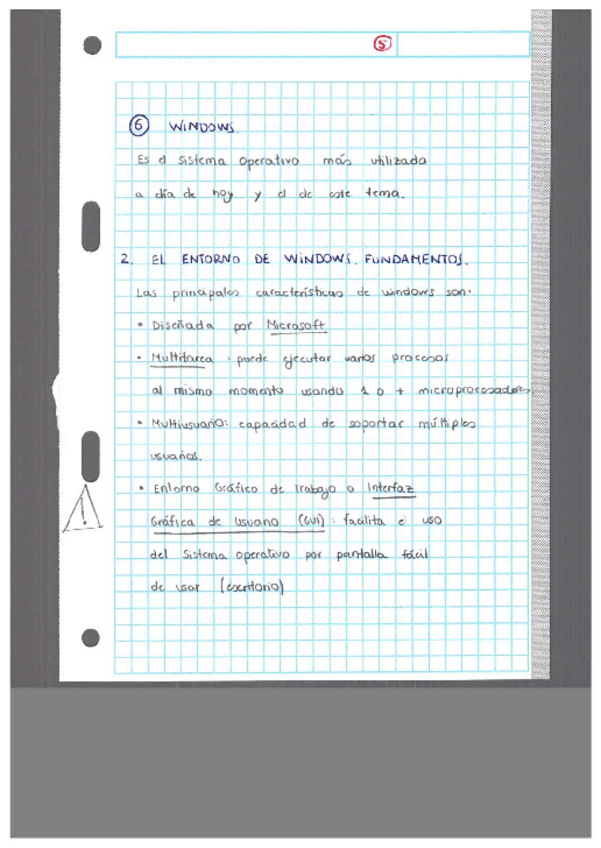 5
6 WINDOWS.
Es el sistema operativo más utilizado
a día de hoy y el de este tema.
2. EL ENTORNO DE WINDOWS. FUNDAMENTOS.
Las principales características de windows son:
• Diseñada por Microsoft
• Multitarea : puede ejecutar varios procesos
al mismo momento usando 1 o + microprocesadores.
• Multiusuario: capacidad de soportar múltiples
usuarios.
• Entorno Gráfico de Trabajo o Interfaz
Gráfica de Usuario (GUI) : facilita e uso
del sistema operativo por pantalla fácil
de usar (escritorio)
!